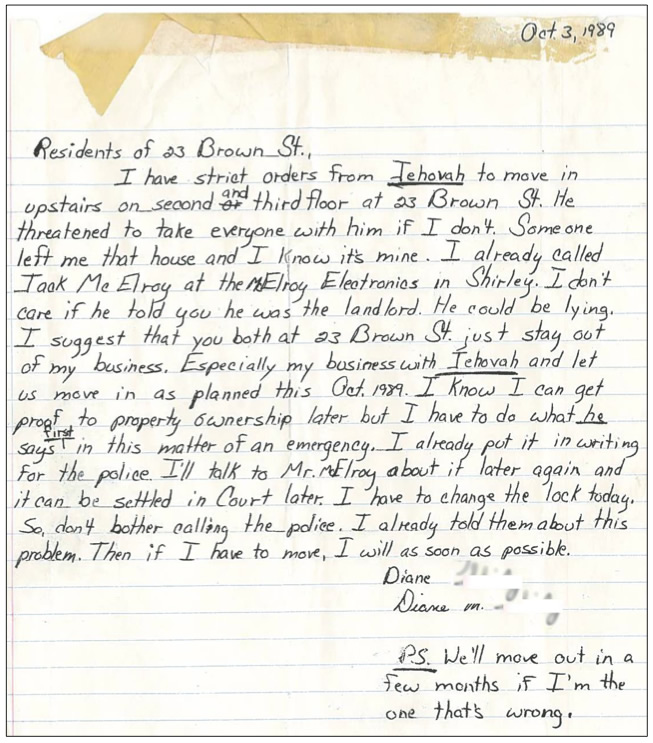 Oct. 3, 1989
Residents of 23 Brown St.,
I have strict orders from Jehovah to move in
upstairs on second and third floor at 23 Brown St. He
threatened to take everyone with him if I don't. Someone
left me that house and I know it's mine. I already called
Jack Mc Elroy at the McElroy Electronics in Shirley. I don't
care if he told you he was the landlord. He could be lying.
I suggest that you both at 23 Brown St. just stay out
of my business. Especially my business with Jehovah and let
us move in as planned this Oct. 1989. I know I can get
proof to property ownership later but I have to do what he
says first in this matter of an emergency. I already put it in writing
for the police. I'll talk to Mr. McElroy about it later again and
it can be settled in Court later. I have to change the lock today.
So, don't bother calling the police. I already told them about this
problem. Then if I have to move, I will as soon as possible.
Diane
Diane m.
P.S. We'll move out in a
few months if I'm the
one that's wrong.